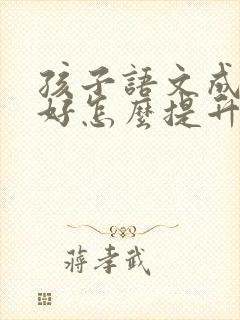 孩子語文成
好怎麼提升
蔣孝武